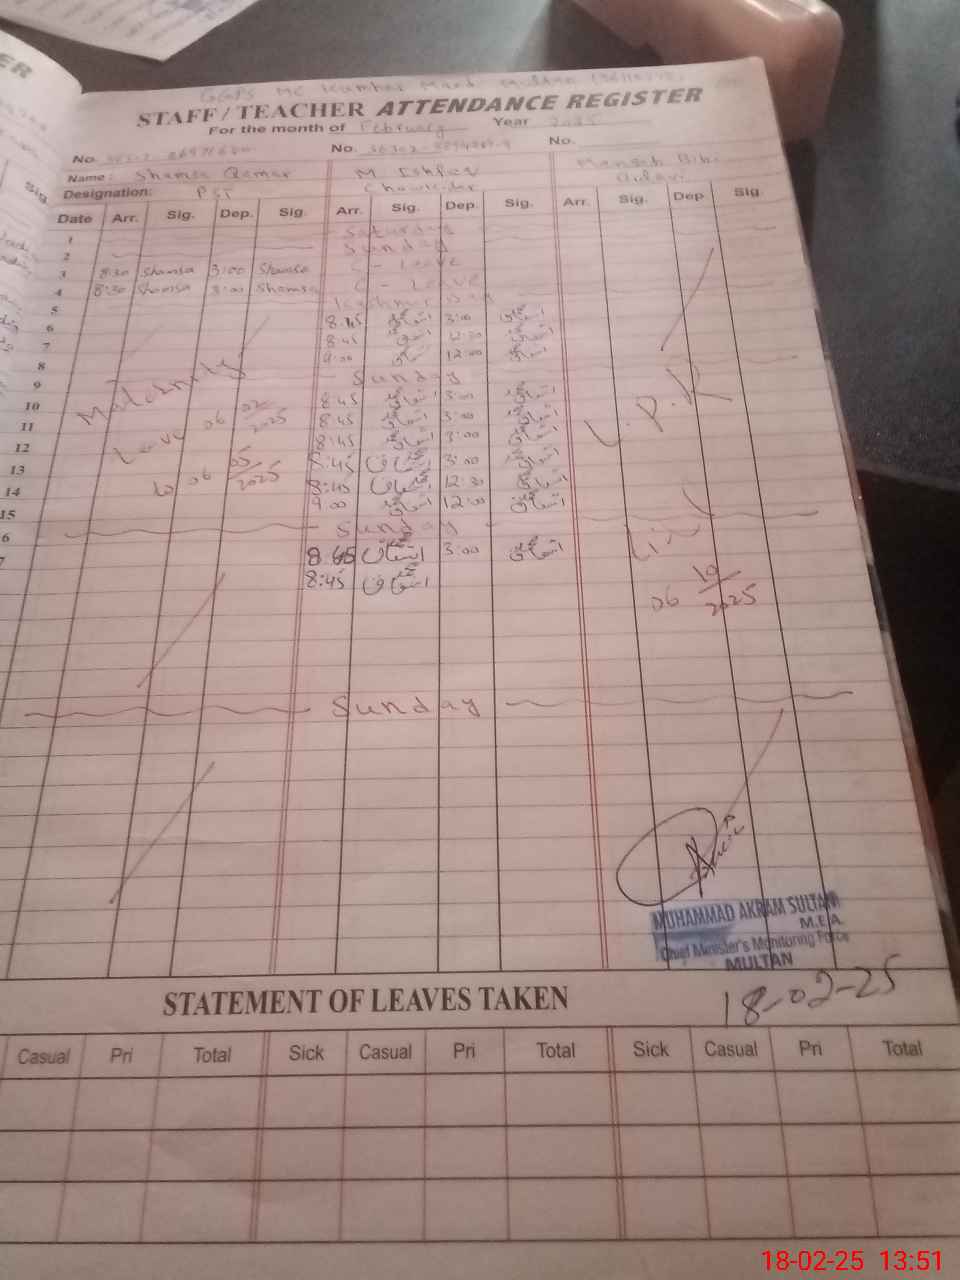 GGPS MC Kumhar Mand Multan
STAFF / TEACHER ATTENDANCE REGISTER
For the month of February Year 2025
No. No. No.
Name: Shamsa Qamar M Ishfaq
Designation: PST Chowkidar
Date Arr. Sig. Dep. Sig. Arr. Sig. Dep. Sig. Arr. Sig. Dep. Sig.
1 Saturday
2 Sunday
3 8:30 Shamsa 3:00 Shamsa C - Leave
4 8:30 Shamsa 3:00 Shamsa C - Leave
5 Kashmir Day
6 8:45 اشفاق 3:00 اشفاق
7 8:45 اشفاق 12:30 اشفاق
8 9:00 اشفاق 12:00 اشفاق
9 Sunday
10 8:45 اشفاق 3:00 اشفاق
11 8:45 اشفاق 3:00 اشفاق
12 8:45 اشفاق 3:00 اشفاق
13 8:45 اشفاق 3:00 اشفاق
14 8:45 اشفاق 12:30 اشفاق
15 9:00 اشفاق 12:00 اشفاق
6 Sunday
7 8:45 اشفاق 3:00 اشفاق
8:45 اشفاق
Maternity
Leave 06 02/2025
to 06 05/2025
L.P.R
till
06 10/2025
Sunday
MUHAMMAD AKRAM SULTAN
M.E.A.
Chief Minister's Monitoring Force
MULTAN
18-02-25
STATEMENT OF LEAVES TAKEN
Casual Pri Total Sick Casual Pri Total Sick Casual Pri Total
18-02-25 13:51